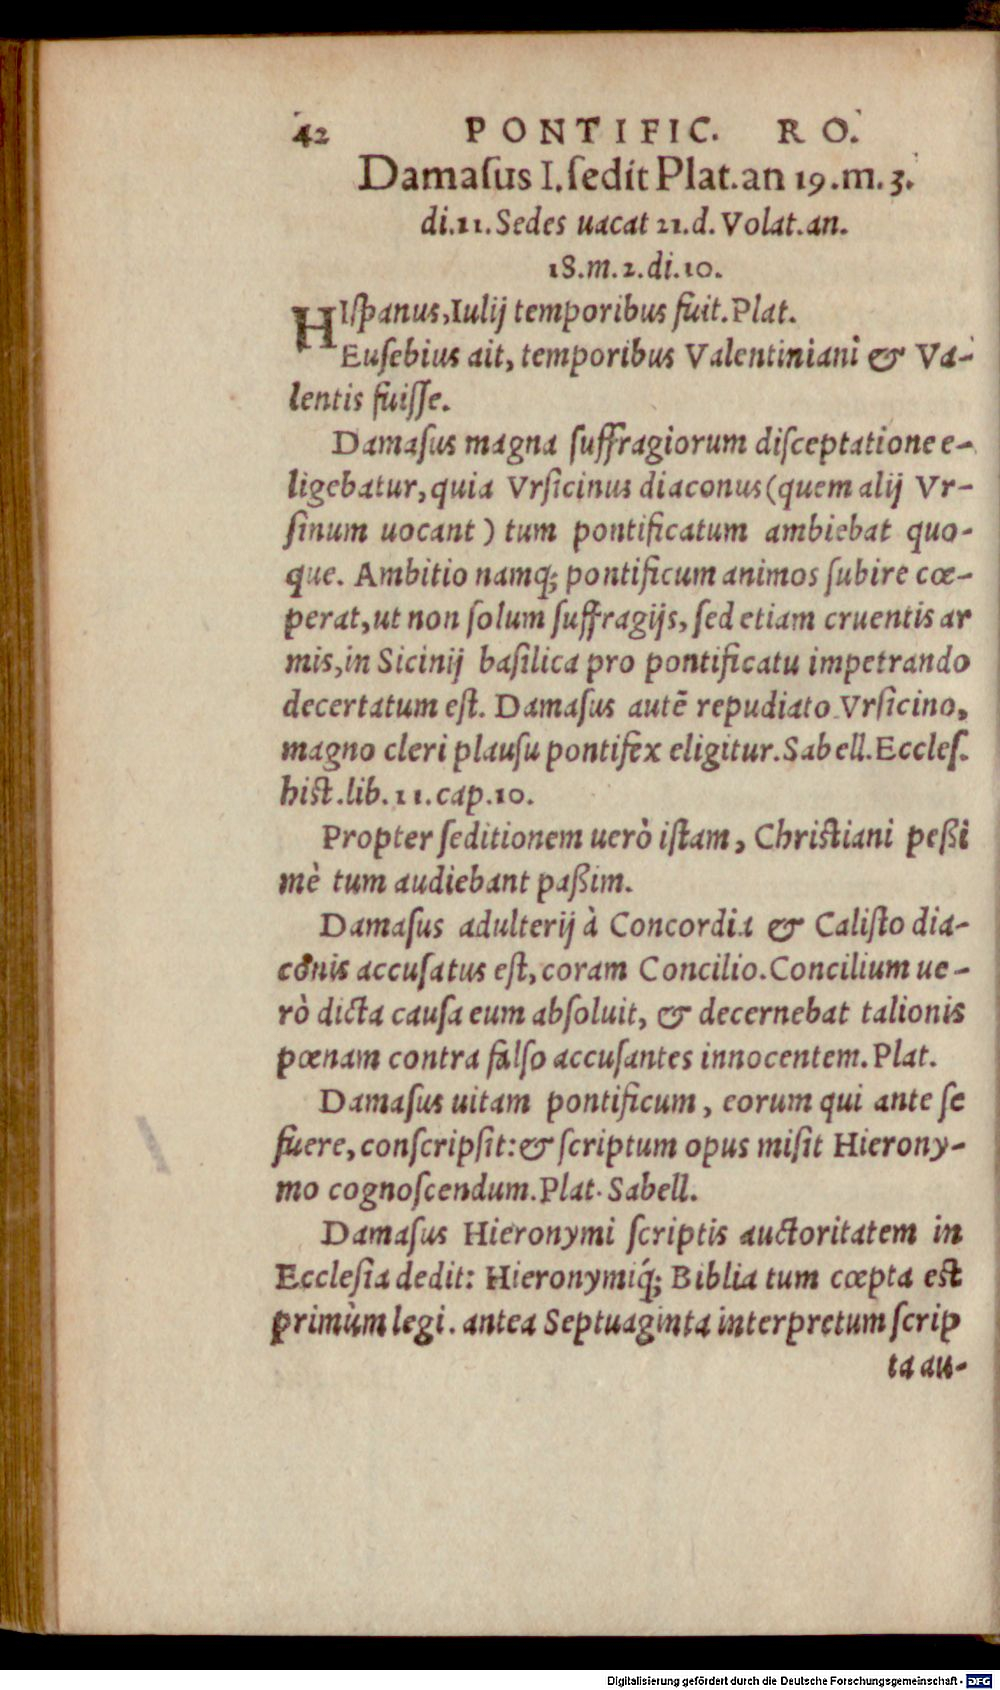 42 PONTIFIC. RO.
Damaſus I. ſedit Plat. an 19. m. 3.
di. 11. Sedes uacat 21. d. Volat. an.
18. m. 2. di. 10.
HIſpanus, Iulij temporibus fuit. Plat.
Euſebius ait, temporibus Valentiniani & Va-
lentis fuiſſe.
Damaſus magna ſuffragiorum diſceptatione e-
ligebatur, quia Vrſicinus diaconus (quem alij Vr-
ſinum uocant) tum pontificatum ambiebat quo-
que. Ambitio namq; pontificum animos ſubire cœ-
perat, ut non ſolum ſuffragijs, ſed etiam cruentis ar
mis, in Sicinij baſilica pro pontificatu impetrando
decertatum eſt. Damaſus autē repudiato Vrſicino,
magno cleri plauſu pontifex eligitur. Sabell. Eccleſ.
hist. lib. 11. cap. 10.
Propter ſeditionem uerò iſtam, Christiani peßi
mè tum audiebant paßim.
Damaſus adulterij à Concordia & Caliſto dia-
conis accuſatus eſt, coram Concilio. Concilium ue-
rò dicta cauſa eum abſoluit, & decernebat talionis
pœnam contra falſo accuſantes innocentem. Plat.
Damaſus uitam pontificum, eorum qui ante ſe
fuere, conſcripſit: & ſcriptum opus miſit Hierony-
mo cognoſcendum. Plat. Sabell.
Damaſus Hieronymi ſcriptis auctoritatem in
Eccleſia dedit: Hieronymiq́; Biblia tum cœpta est
primùm legi. antea Septuaginta interpretum ſcrip
ta au-
Digitalisierung gefördert durch die Deutsche Forschungsgemeinschaft - DFG